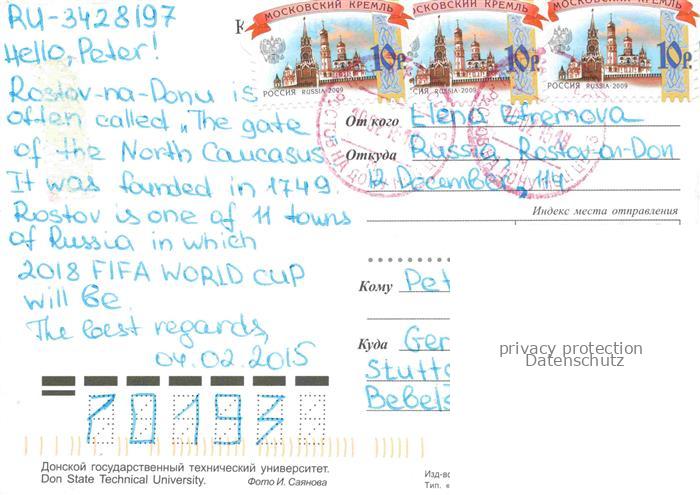 RU-3428197
Hello, Peter!
Rostov-na-Donu is
often called „The gate
of the North Caucasus
It was founded in 1749.
Rostov is one of 11 towns
of Russia in which
2018 FIFA WORLD CUP
will be.
The best regards,
04.02.2015
МОСКОВСКИЙ КРЕМЛЬ
10р
РОССИЯ RUSSIA·2009
МОСКОВСКИЙ КРЕМЛЬ
10р
РОССИЯ RUSSIA·2009
МОСКОВСКИЙ КРЕМЛЬ
10р
РОССИЯ RUSSIA·2009
От кого Elena Efremova
Откуда Russia, Rostov-on-Don
12 December, 114
Индекс места отправления
Кому Pet
Куда Ger
Stuttg
Bebels
privacy protection
Datenschutz
70193
Донской государственный технический университет.
Don State Technical University. Фото И. Саянова
Изд-во
Тип. «